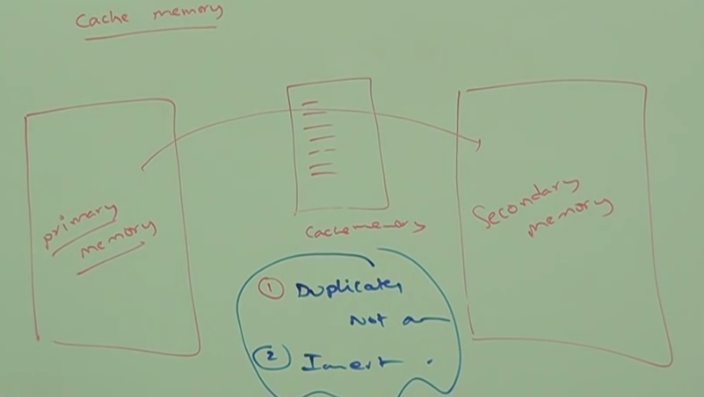 Cache memory
primary
memory
Cache memory
Secondary
memory
① Duplicates
Not
②